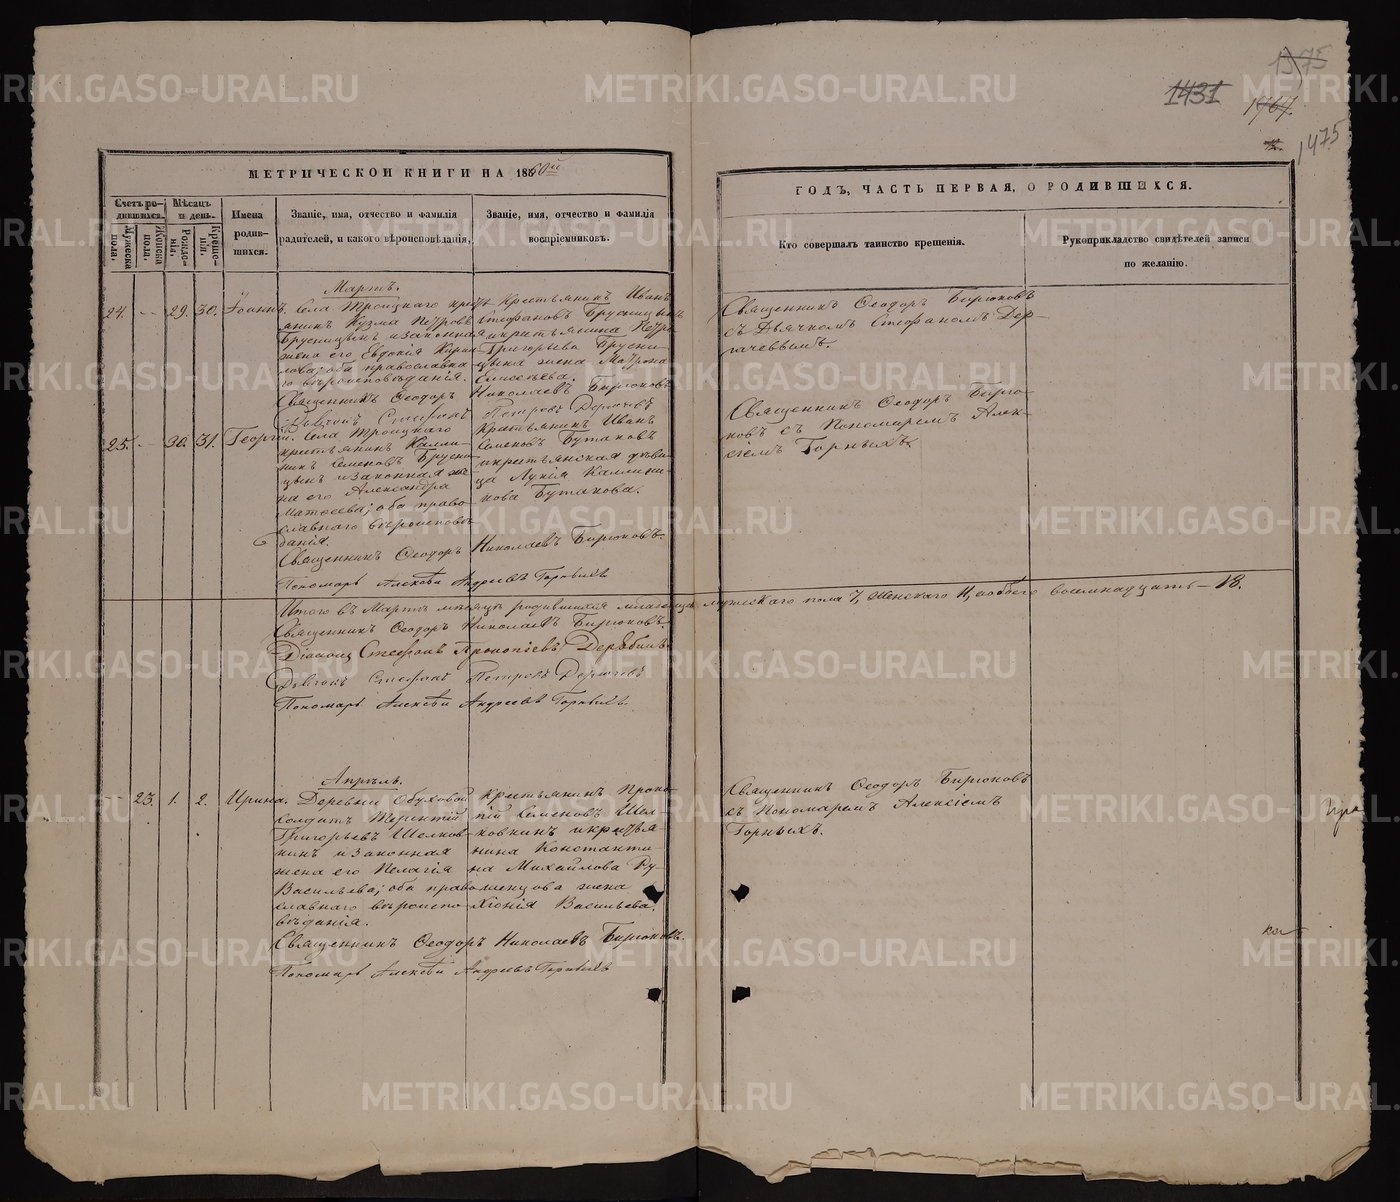 1375
1431 1767.
1475
МЕТРИЧЕСКОЙ КНИГИ НА 1860й
ГОДЪ, ЧАСТЬ ПЕРВАЯ, О РОДИВШИХСЯ.
Счетъ родившихся.
Мужеска пола,
Женска пола,
Мѣсяцъ и день.
Рожденія,
Крещенія,
Имена родившихся.
Званіе, имя, отчество и фамилія
родителей, и какого вѣроисповѣданія,
Званіе, имя, отчество и фамилія
воспріемниковъ.
Кто совершалъ таинство крещенія.
Рукоприкладство свидѣтелей записи
по желанію.
Мартъ.
24. 29. 30. Іоаннъ.
Села Троицкаго крестьянинъ
Кузма Петровъ
Брусницынъ и законная
жена его Евдокія Кирилова;
оба православнаго
вѣроисповѣданія.
Крестьянинъ Иванъ
Стефановъ Брусницынъ
и крестьянина Петра
Григорьева Брусницына
жена Матрона
Елисеева.
Священникъ Ѳеодоръ Бирюковъ
съ Дьячкомъ Стефаномъ Дергачеввымъ.
Священникъ Ѳеодоръ Николаевъ Бирюковъ
Дьячокъ Стефанъ Петровъ Дергачевъ
25. 30. 31. Георгій.
Села Троицкаго
крестьянинъ Каллиникъ
Семеновъ Брусницынъ
и законная жена
его Александра
Матѳеева; оба православнаго
вѣроисповѣданія.
Крестьянинъ Иванъ
Семеновъ Бутаковъ
и крестьянская дѣвица
Лукія Каллиникова
Бутакова.
Священникъ Ѳеодоръ Бирюковъ
съ Пономаремъ Алексіемъ
Горныхъ.
Священникъ Ѳеодоръ Николаевъ Бирюковъ.
Пономарь Алексѣй Андреевъ Горныхъ
Итого въ Мартѣ мѣсяцѣ родившихся младенцевъ мужескаго пола 7, женскаго 11, а обоего восемнадцать — 18.
Священникъ Ѳеодоръ Николаевъ Бирюковъ.
Діаконъ Стефанъ Прокопіевъ Дерябинъ
Дьячокъ Стефанъ Петровъ Дергачевъ
Пономарь Алексѣй Андреевъ Горныхъ.
Апрѣль.
23. 1. 2. Ирина.
Деревни Обуховой
солдатъ Терентій
Григорьевъ Шелковкинъ
и законная
жена его Пелагія
Васильева; оба православнаго
вѣроисповѣданія.
Крестьянинъ Прокопій
Семеновъ Шелковкинъ
и крестьянина
Константина
Михайлова Румянцова
жена
Хіонія Васильева.
Священникъ Ѳеодоръ Бирюковъ
съ Пономаремъ Алексіемъ
Горныхъ.
Священникъ Ѳеодоръ Николаевъ Бирюковъ.
Пономарь Алексѣй Андреевъ Горныхъ
METRIKI.GASO-URAL.RU